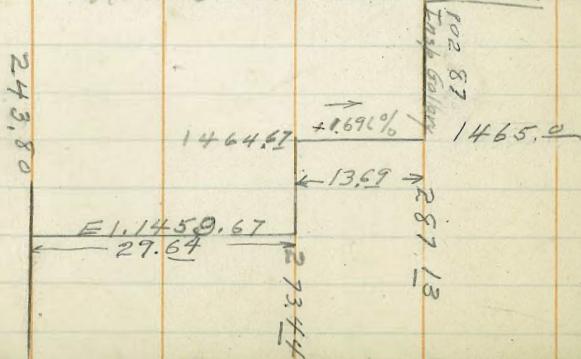 102 87
Insp Gallery
243.80
1464.67
+1.691%
1465.0
13.69
287.13
El. 1459.67
29.64
273.44